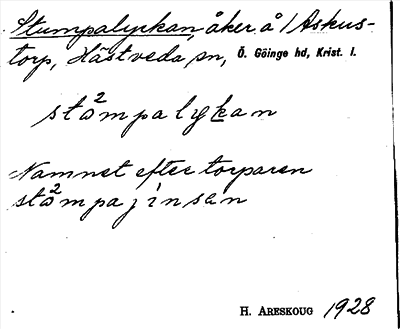 Stumpalyckan, åker å 1 Askus-
torp, Hästveda sn, Ö. Göinge hd, Krist. l.
stə²mpalykan
Namnet efter torparen
stə²mpajinsən
H. ARESKOUG 1928